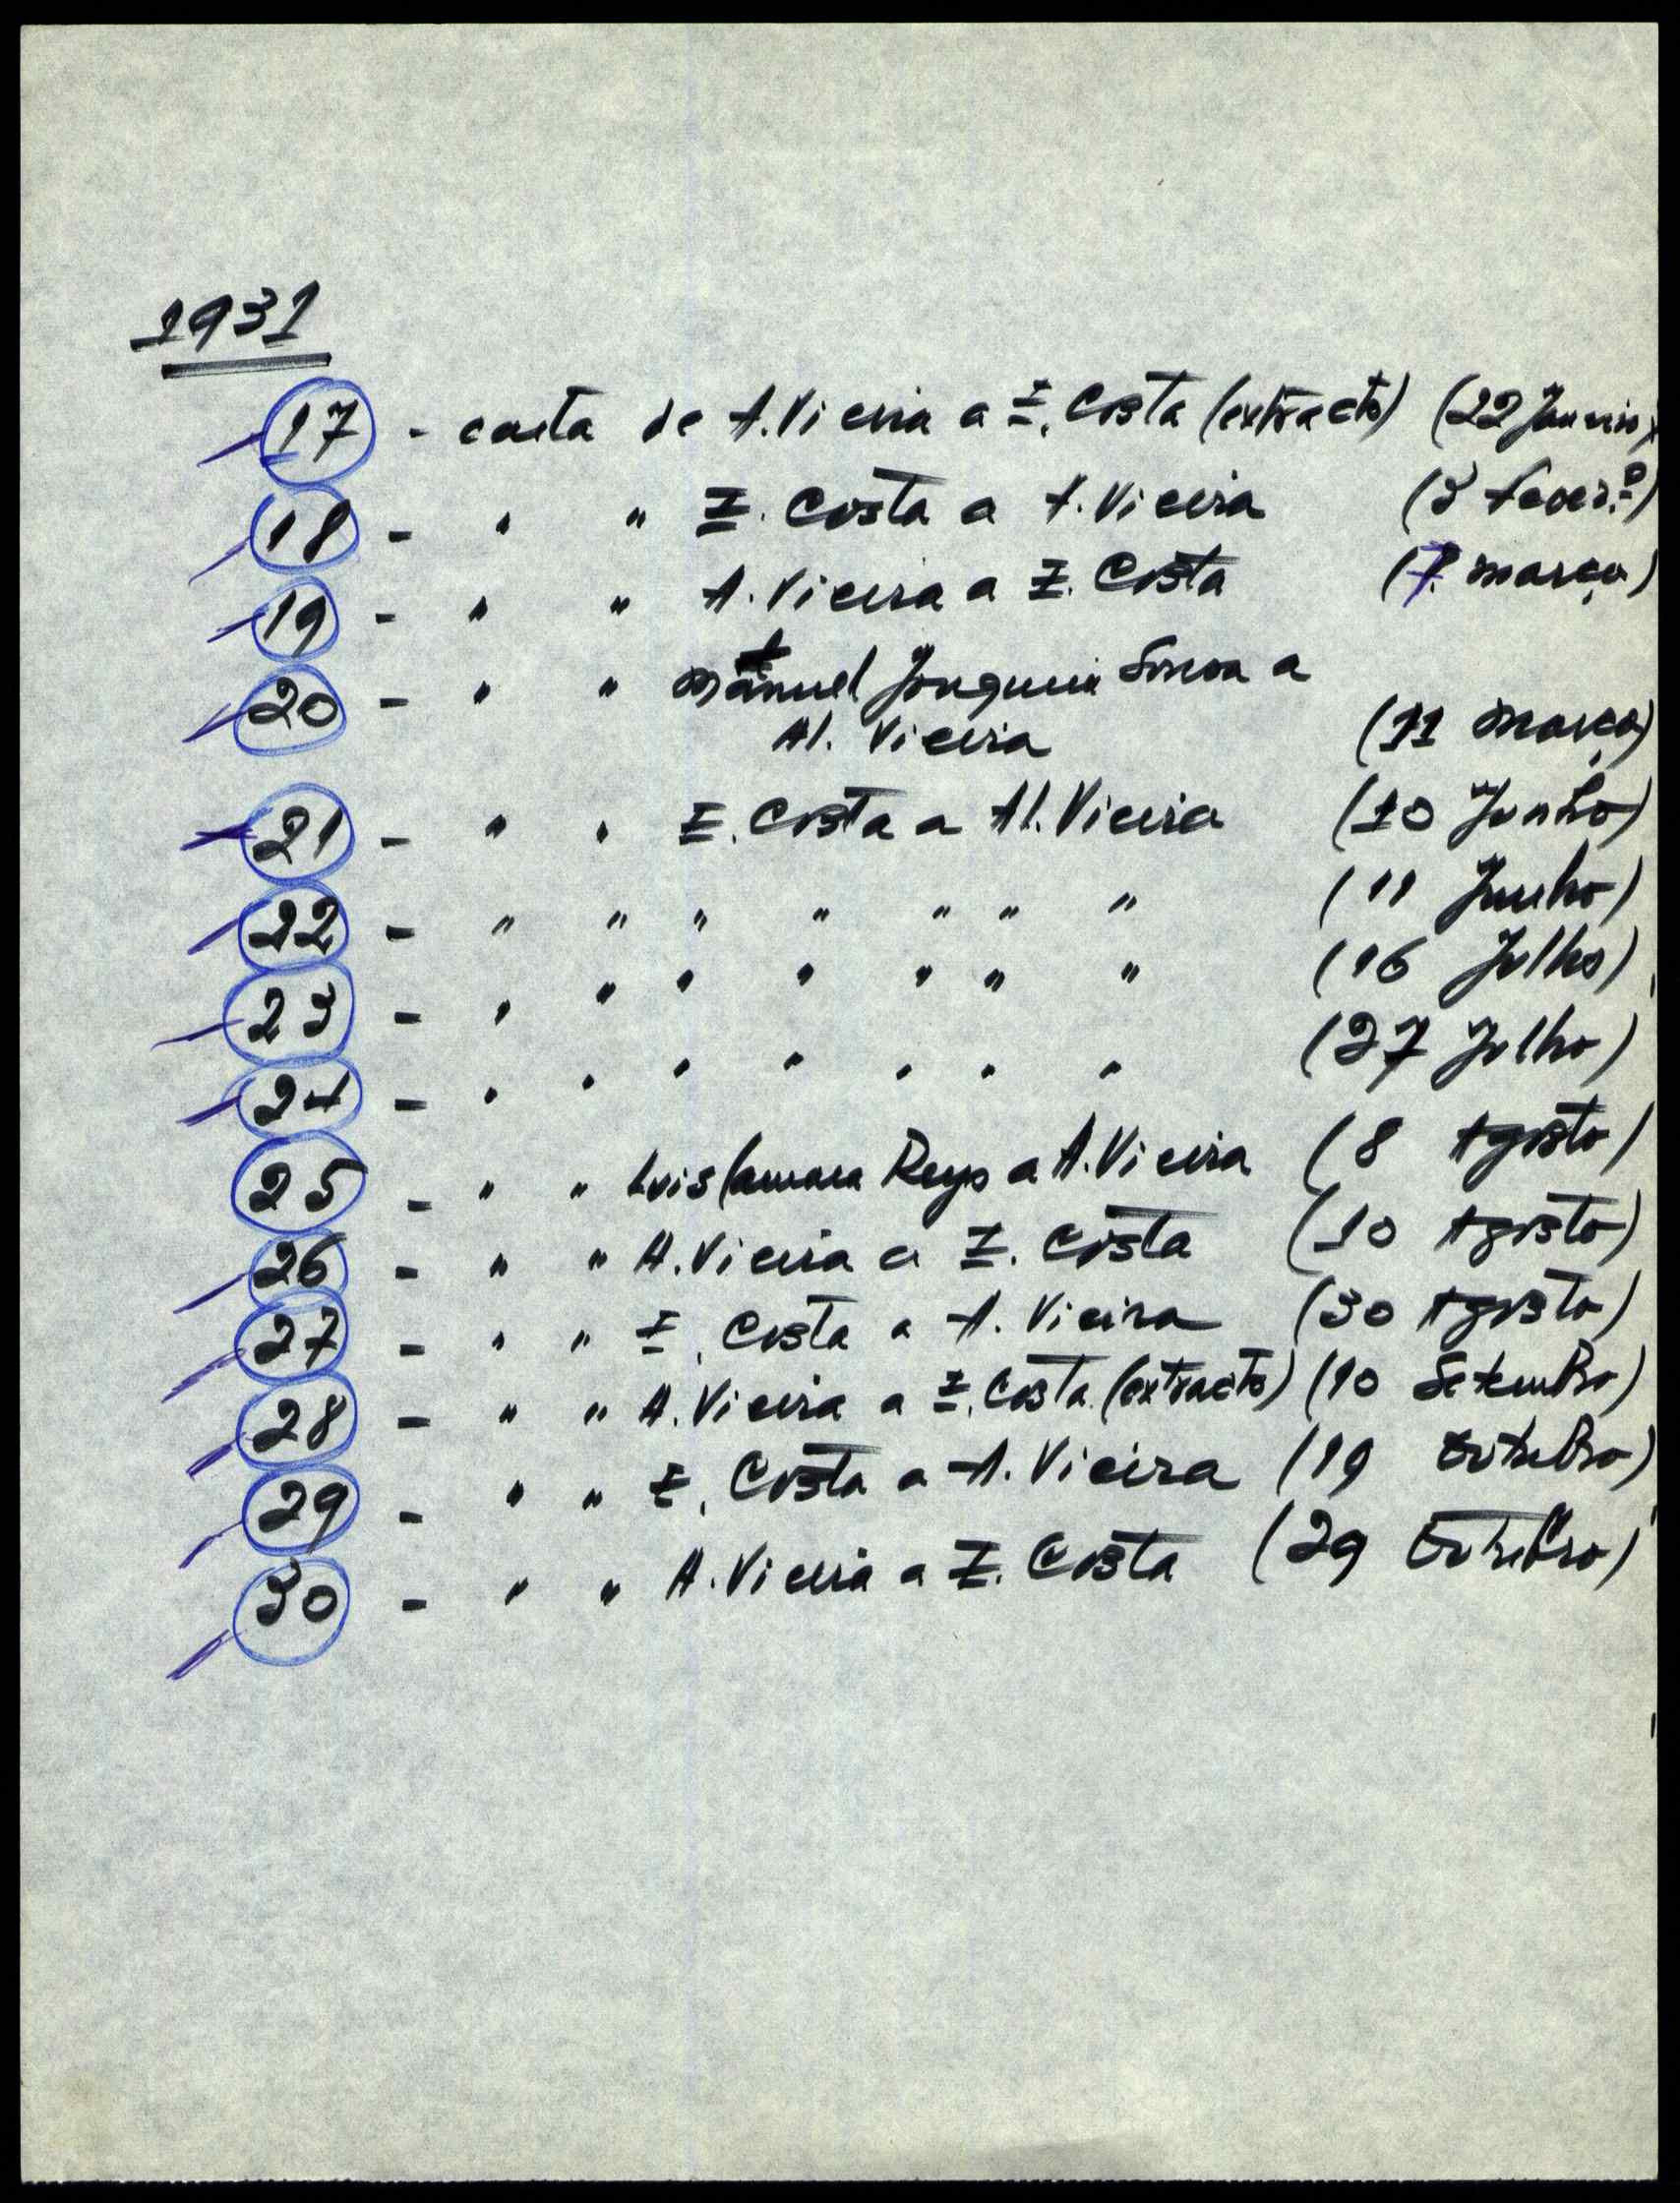 1931
17 - carta de A. Vieira a E. Costa (extracto) (22 Janeiro)
18 - " " E. Costa a A. Vieira (3 Fever.º)
19 - " " A. Vieira a E. Costa (7 março)
20 - " " Manuel Joaquim Sousa a
Al. Vieira (11 março)
21 - " " E. Costa a Al. Vieira (10 Junho)
22 - " " " " " " " (11 Junho)
23 - " " " " " " " (16 Julho)
24 - " " " " " " " (27 Julho)
25 - " " Luis Camara Reys a A. Vieira (8 Agosto)
26 - " " A. Vieira a E. Costa (10 Agosto)
27 - " " E. Costa a A. Vieira (30 Agosto)
28 - " " A. Vieira a E. Costa (extracto) (10 Setembro)
29 - " " E. Costa a A. Vieira (19 Outubro)
30 - " " A. Vieira a E. Costa (29 Outubro)